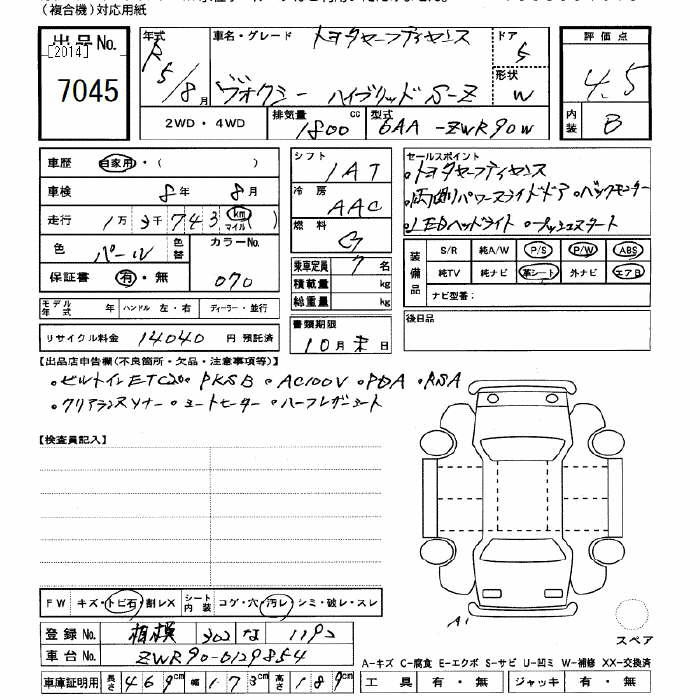 (複合機)対応用紙
出品No.
[2014]
7045
年式 R5/8月
車名・グレード トヨタセーフティセンス
ヴォクシー ハイブリッド S-Z
ドア 5
形状 W
評価点 4.5
内装 B
2WD・4WD
排気量 1800 cc
型式 6AA-ZWR90W
車歴 自家用・( )
車検 8年 8月
走行 1万3千743 km マイル )
色 パール 色替
カラーNo. 070
保証書 有・無
モデル年式 年 ハンドル 左・右 ディーラー・並行
リサイクル料金 14040 円 預託済
シフト IAT
冷房 AAC
燃料 G
乗車定員 7名
積載量 kg
総重量 kg
書類期限
10月末日
セールスポイント
・トヨタセーフティセンス
・両側パワースライドドア ・バックモニター
・LEDヘッドライト ・プッシュスタート
装備品
S/R 純A/W P/S P/W ABS
純TV 純ナビ 革シート 外ナビ エアB
ナビ型番:
後日品
【出品店申告欄(不良箇所・欠品・注意事項等)】
・ビルトインETC2.0 ・PKSB ・AC100V ・PDA ・RSA
・クリアランスソナー ・シートヒーター ・ハーフレザーシート
【検査員記入】
FW キズ・トビ石・割レX シート内装 コゲ・穴・汚レ・シミ・破レ・スレ
登録No. 相模 302 な 1192
車台No. ZWR90-0129854
車庫証明用 長さ 469cm 幅 173cm 高さ 189cm
A1
スペア
A-キズ C-腐食 E-エクボ S-サビ U-凹ミ W-補修 XX-交換済
工具 有・無 ジャッキ 有・無